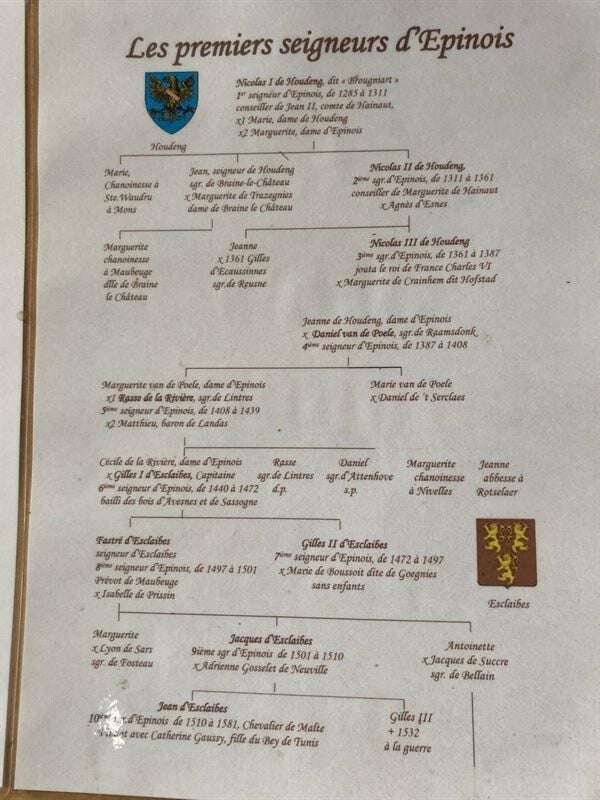 Les premiers seigneurs d'Epinois
Nicolas I de Houdeng, dit « Brougniart »
1er seigneur d'Epinois, de 1285 à 1311
conseiller de Jean II, comte de Hainaut,
x1 Marie, dame de Houdeng
x2 Marguerite, dame d'Epinois
Houdeng
Marie,
Chanoinesse à
Ste.Waudru
à Mons
Jean, seigneur de Houdeng
sgr. de Braine-le-Château
x Marguerite de Trazegnies
dame de Braine le Château
Nicolas II de Houdeng,
2ième sgr.d'Epinois, de 1311 à 1361
conseiller de Marguerite de Hainaut
x Agnès d'Esnes
Marguerite
chanoinesse
à Maubeuge
dlle de Braine
le Château
Jeanne
x 1361 Gilles
d'Ecaussinnes
sgr.de Reusne
Nicolas III de Houdeng
3ième sgr.d'Epinois, de 1361 à 1387
jouta le roi de France Charles VI
x Marguerite de Crainhem dit Hofstad
Jeanne de Houdeng, dame d'Epinois
x Daniel van de Poele, sgr.de Raamsdonk
4ième seigneur d'Epinois, de 1387 à 1408
Marguerite van de Poele, dame d'Epinois
x1 Rasse de la Rivière, sgr.de Lintres
5ième seigneur d'Epinois, de 1408 à 1439
x2 Matthieu, baron de Landas
Marie van de Poele
x Daniel de 't Serclaes
Cécile de la Rivière, dame d'Epinois
x Gilles I d'Esclaibes, Capitaine
6ième seigneur d'Epinois, de 1440 à 1472
bailli des bois d'Avesnes et de Sassogne
Rasse
sgr.de Lintres
d.p.
Daniel
sgr.d'Attenhove
s.p.
Marguerite
chanoinesse
à Nivelles
Jeanne
abbesse à
Rotselaer
Fastré d'Esclaibes
seigneur d'Esclaibes
8ième seigneur d'Epinois, de 1497 à 1501
Prévot de Maubeuge
x Isabelle de Prissin
Gilles II d'Esclaibes
7ième seigneur d'Epinois, de 1472 à 1497
x Marie de Boussoit dite de Goegnies
sans enfants
Esclaibes
Marguerite
x Lyon de Sars
sgr. de Fosteau
Jacques d'Esclaibes
9ième sgr d'Epinois de 1501 à 1510
x Adrienne Gosselet de Neuville
Antoinette
x Jacques de Succre
sgr. de Bellain
Jean d'Esclaibes
d'Epinois de 1510 à 1581, Chevalier de Malte
avec Catherine Gaussy, fille du Bey de Tunis
Gilles III
+ 1532
à la guerre